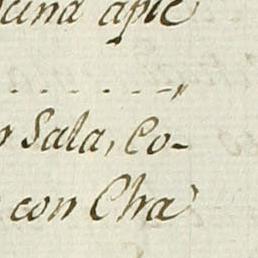 apie
Sala, Co-
con Cha